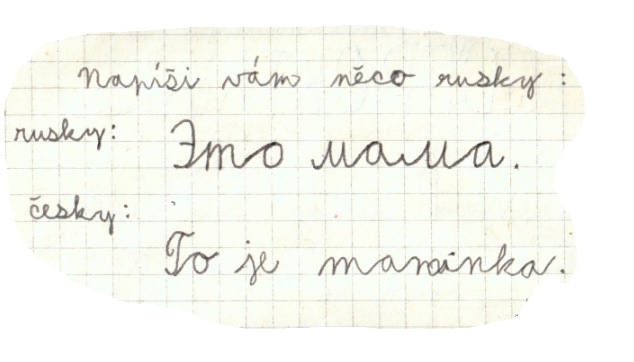 Napíši vám něco rusky:
rusky: Это мама.
česky:
To je maminka.